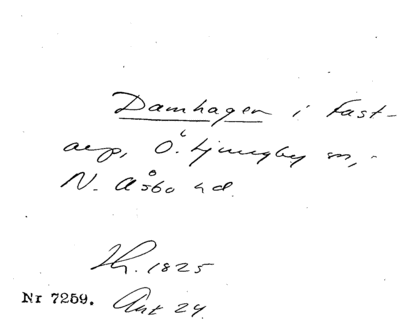 Damhagen i Fast-
arp, Ö. Ljungby sn,
N. Åsbo hd.
Hr. 1825
Nr 7259. Ant 24.